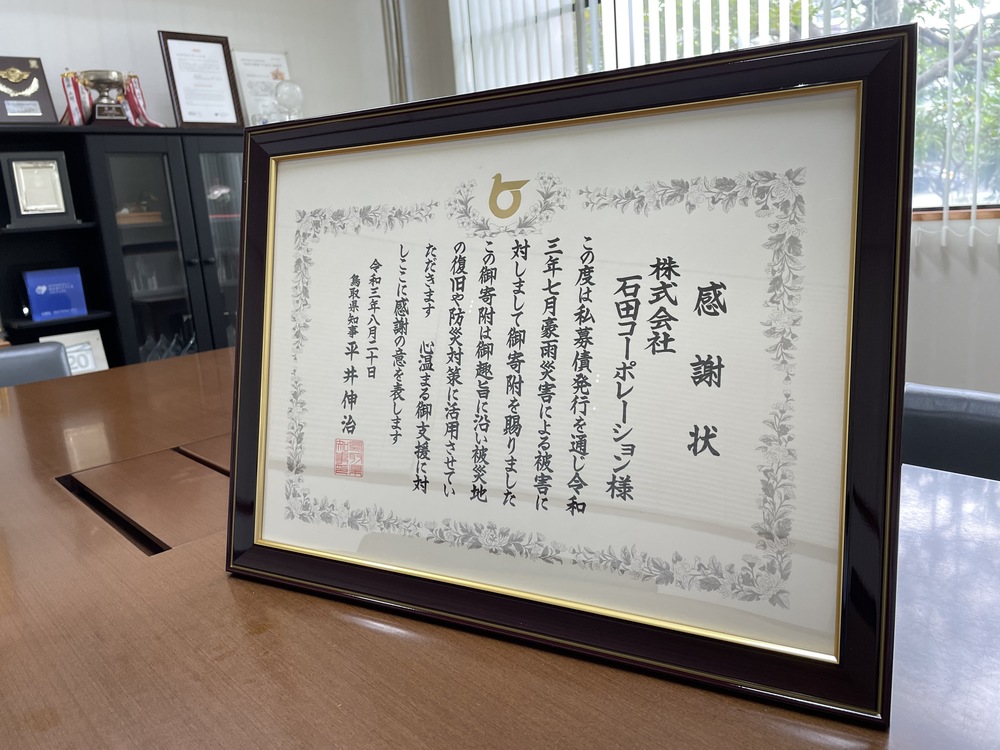 感謝状
株式会社
石田コーポレーション様
この度は私募債発行を通じ令和
三年七月豪雨災害による被害に
対しまして御寄附を賜りました
この御寄附は御趣旨に沿い被災地
の復旧や防災対策に活用させてい
ただきます 心温まる御支援に対
しここに感謝の意を表します
令和三年八月二十日
鳥取県知事 平井伸治
20